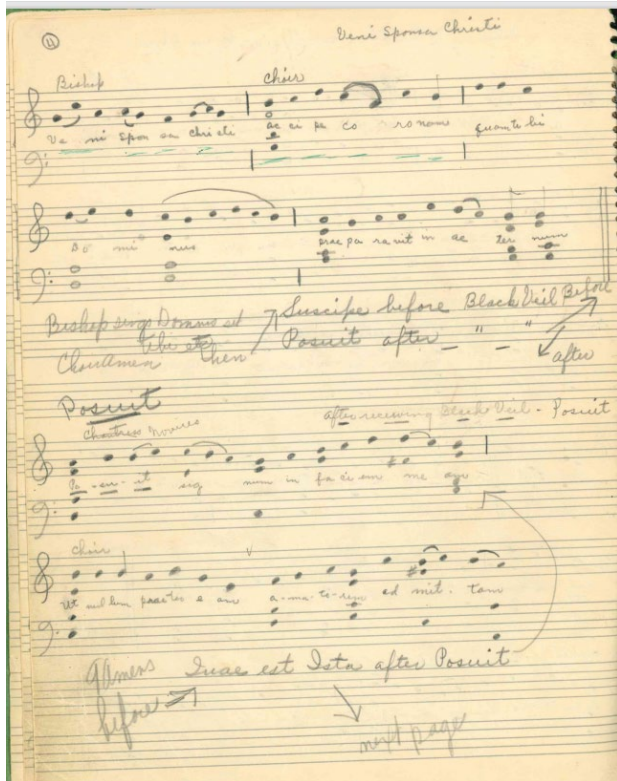 11
Veni Sponsa Christi
Bishop
Choir
Ve ni Spon sa Christi ac ci pe co ronam quam ti bi
Do mi nus prae pa ravit in ae ter num
Bishop sings Dominus sit
tibi etc
Choir Amen then
Suscipe before Black Veil Before
Posuit after " "
after
Posuit
Chantress Novices
after receiving Black Veil - Posuit
Po-su-it sig num in fa ci em me am
Choir
Ut nullum praeter e um a-ma-to-rem ad mit-tam
9 Amens
before
Quae est Ista after Posuit
next page